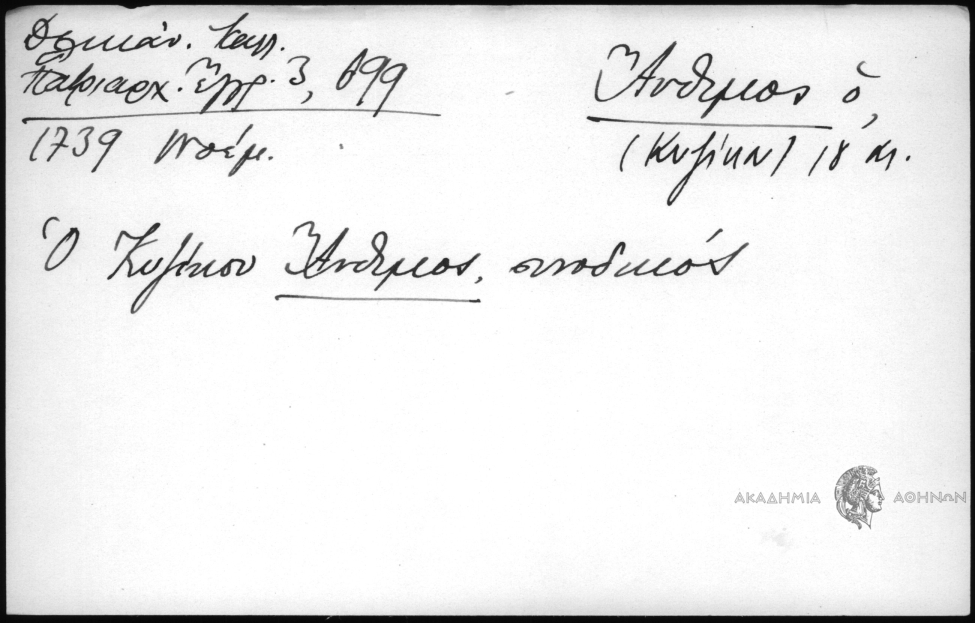 Δελικάν. Καλ.
Πατριαρχ. Ἔγγρ. 3, 699
1739 Νοέμ.
Ἄνθιμος ὁ,
(Κυζίκου) 18 αι.
Ὁ Κυζίκου Ἄνθιμος, συνοδικός
ΑΚΑΔΗΜΙΑ ΑΘΗΝΩΝ